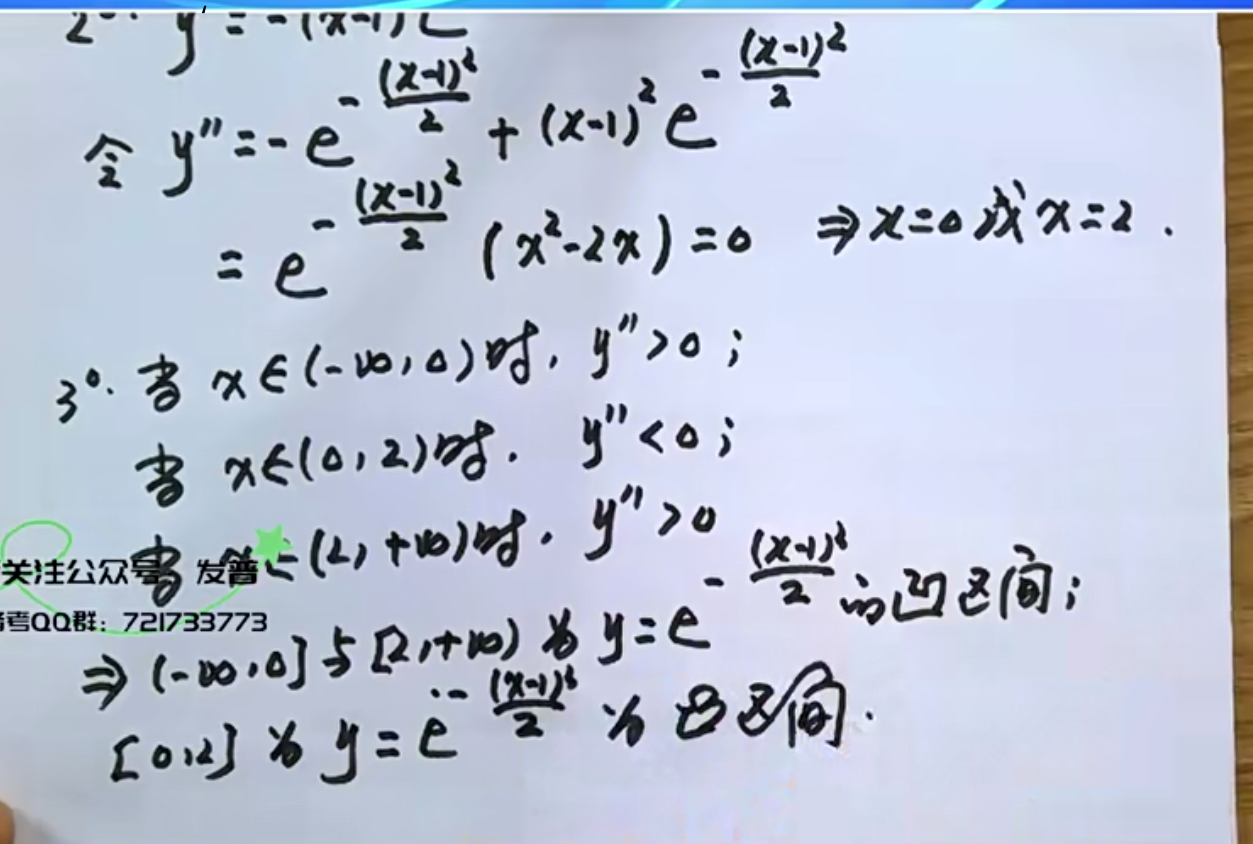 2°. y' = -(x-1)e
令 y'' = -e^{-\frac{(x-1)^2}{2}} + (x-1)^2 e^{-\frac{(x-1)^2}{2}}
= e^{-\frac{(x-1)^2}{2}} (x^2-2x) = 0 ⇒ x=0 或 x=2.
3°. 当 x∈(-∞,0)时, y''>0;
当 x∈(0,2)时. y''<0;
当 x∈(2,+∞)时. y''>0
关注公众号 发普
考QQ群: 721733773
⇒ (-∞,0]与[2,+∞) 为 y=e^{-\frac{(x-1)^2}{2}} 的凹区间;
[0,2] 为 y=e^{-\frac{(x-1)^2}{2}} 的 凸区间.